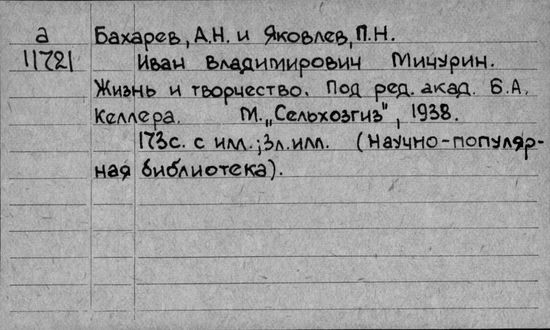 а
11721
Бахарев, А.Н. и Яковлев, П.Н.
Иван Владимирович Мичурин.
Жизнь и творчество. Под ред. акад. Б.А.
Келлера. М. „Сельхозгиз", 1938.
173с. с илл.; 3л. илл. (Научно-популяр-
ная библиотека).